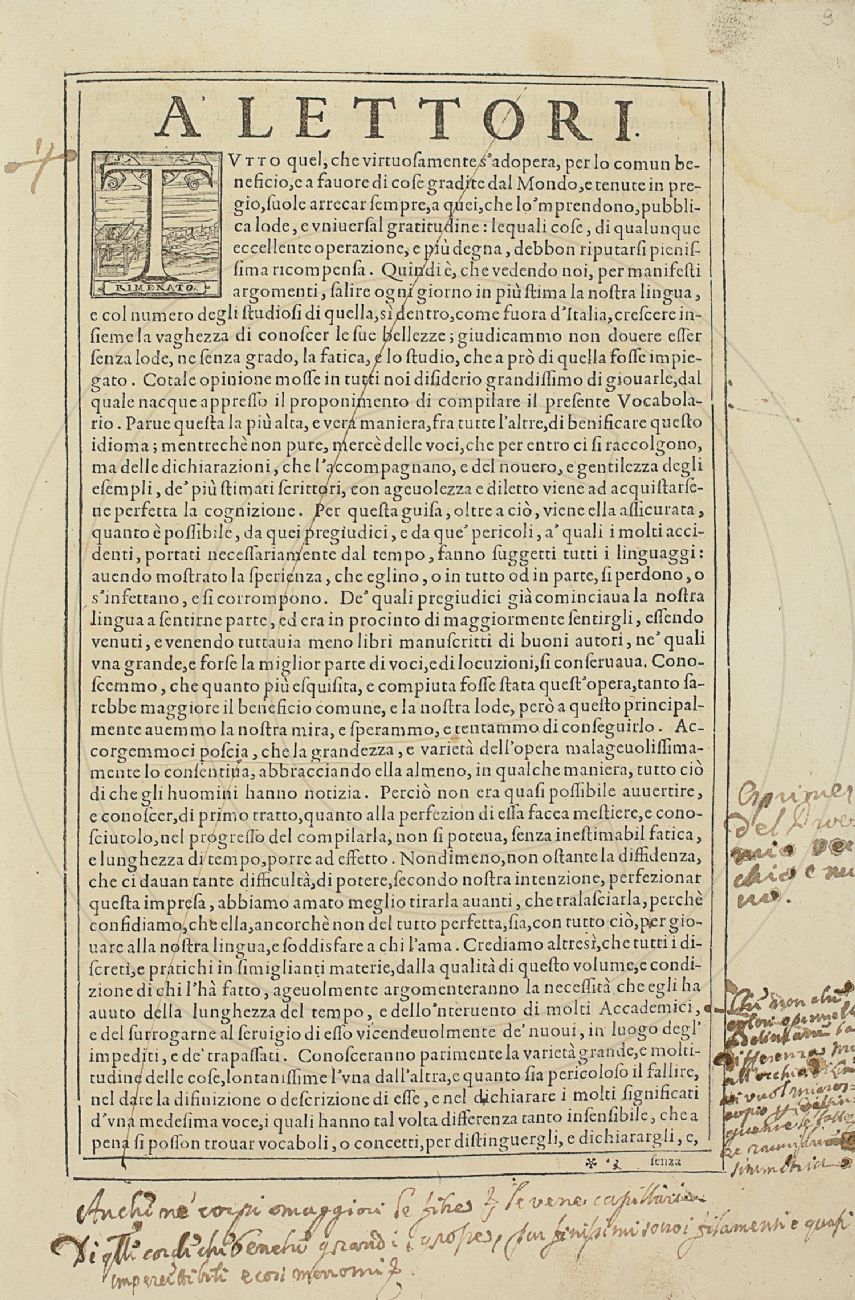 9
A' LETTORI.
TVTTO quel, che virtuoſamente s'adopera, per lo comun be-
neficio, e a fauore di coſe gradite dal Mondo, e tenute in pre-
gio, ſuole arrecar ſempre, a quei, che lo 'mprendono, pubbli-
ca lode, e vniuerſal gratitudine: lequali coſe, di qualunque
eccellente operazione, e più degna, debbon riputarſi pieniſ-
ſima ricompenſa. Quindi è, che vedendo noi, per manifeſti
RIMENATO.
argomenti, ſalire ogni giorno in più ſtima la noſtra lingua,
e col numero degli ſtudioſi di quella, sì dentro, come fuora d'Italia, creſcere in-
ſieme la vaghezza di conoſcer le ſue bellezze; giudicammo non douere eſſer
ſenza lode, ne ſenza grado, la fatica, e lo ſtudio, che a prò di quella foſſe impie-
gato. Cotale opinione moſſe in tutti noi diſiderio grandiſſimo di giouarle, dal
quale nacque appreſſo il proponimento di compilare il preſente Vocabola-
rio. Parue queſta la più alta, e vera maniera, fra tutte l'altre, di benificare queſto
idioma; mentrechè non pure, mercè delle voci, che per entro ci ſi raccolgono,
ma delle dichiarazioni, che l'accompagnano, e del nouero, e gentilezza degli
eſempli, de' più ſtimati ſcrittori, con ageuolezza e diletto viene ad acquiſtarſe-
ne perfetta la cognizione. Per queſta guiſa, oltre a ciò, viene ella aſſicurata,
quanto è poſſibile, da quei pregiudici, e da que' pericoli, a' quali i molti acci-
denti, portati neceſſariamente dal tempo, fanno ſuggetti tutti i linguaggi:
auendo moſtrato la ſperienza, che eglino, o in tutto od in parte, ſi perdono, o
s'infettano, e ſi corrompono. De' quali pregiudici già cominciaua la noſtra
lingua a ſentirne parte, ed era in procinto di maggiormente ſentirgli, eſſendo
venuti, e venendo tuttauia meno libri manuſcritti di buoni autori, ne' quali
vna grande, e forſe la miglior parte di voci, e di locuzioni, ſi conſeruaua. Cono-
ſcemmo, che quanto più eſquiſita, e compiuta foſſe ſtata queſt'opera, tanto ſa-
rebbe maggiore il beneficio comune, e la noſtra lode, però a queſto principal-
mente auemmo la noſtra mira, e ſperammo, e tentammo di conſeguirlo. Ac-
corgemmoci poſcia, che la grandezza, e varietà dell'opera malageuoliſſima-
mente lo conſentiua, abbracciando ella almeno, in qualche maniera, tutto ciò
di che gli huomini hanno notizia. Perciò non era quaſi poſſibile auuertire,
e conoſcer, di primo tratto, quanto alla perfezion di eſſa facea meſtiere, e cono-
ſciutolo, nel progreſſo del compilarla, non ſi poteua, ſenza ineſtimabil fatica,
e lunghezza di tempo, porre ad effetto. Nondimeno, non oſtante la diffidenza,
che ci dauan tante difficultà, di potere, ſecondo noſtra intenzione, perfezionar
queſta impreſa, abbiamo amato meglio tirarla auanti, che tralaſciarla, perchè
confidiamo, che ella, ancorchè non del tutto perfetta, ſia, con tutto ciò, per gio-
uare alla noſtra lingua, e ſoddisfare a chi l'ama. Crediamo altresì, che tutti i di-
ſcreti, e pratichi in ſimiglianti materie, dalla qualità di queſto volume, e condi-
zione di chi l'hà fatto, ageuolmente argomenteranno la neceſſità che egli ha
auuto della lunghezza del tempo, e dello 'nteruento di molti Accademici,
e del ſurrogarne al ſeruigio di eſſo vicendeuolmente de' nuoui, in luogo degl'
impediti, e de' trapaſſati. Conoſceranno parimente la varietà grande, e molti-
tudine delle coſe, lontaniſſime l'vna dall'altra, e quanto ſia pericoloſo il fallire,
nel dare la difinizione o deſcrizione di eſſe, e nel dichiarare i molti ſignificati
d'vna medeſima voce, i quali hanno tal volta differenza tanto inſenſibile, che a
pena ſi poſſon trouar vocaboli, o concetti, per diſtinguergli, e dichiarargli, e,
ſenza